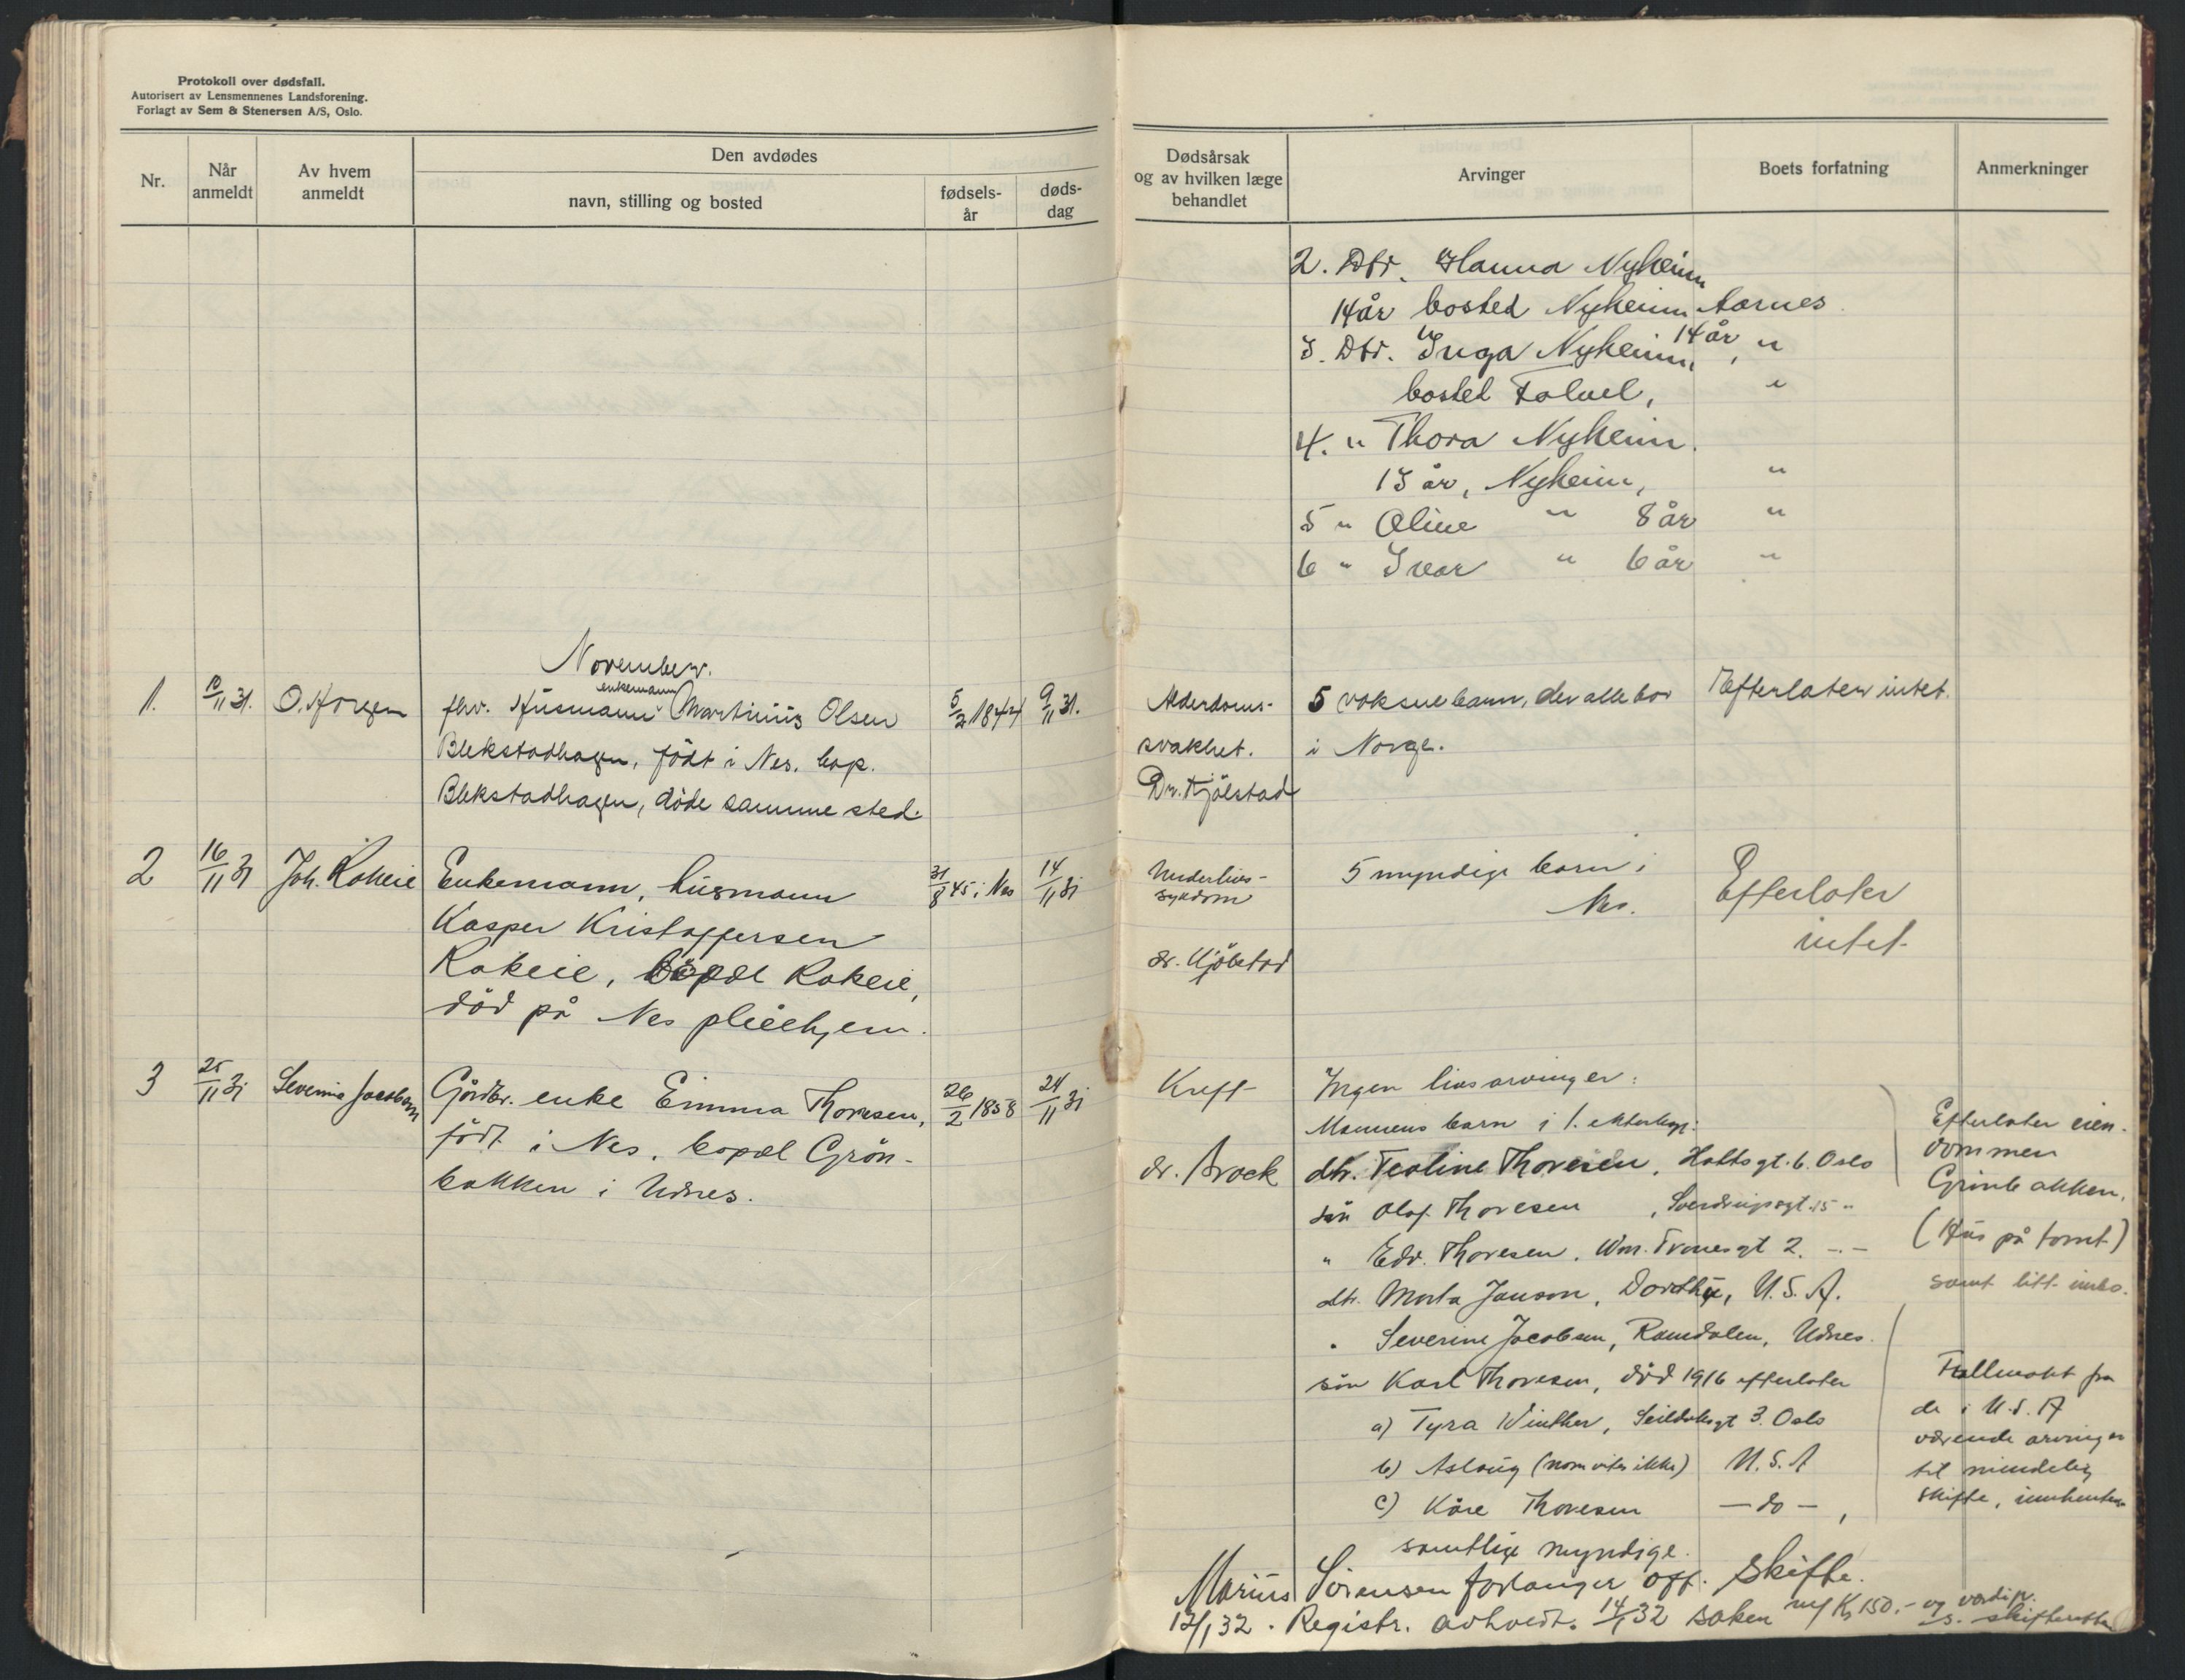 Protokoll over dødsfall.
Autorisert av Lensmennenes Landsforening.
Forlagt av Sem & Stenersen A/S, Oslo.
Nr.
Når anmeldt
Av hvem anmeldt
Den avdødes
navn, stilling og bosted
fødsels-år
døds-dag
Dødsårsak
og av hvilken læge
behandlet
Arvinger
Boets forfatning
Anmerkninger
2. Dtr. Hanna Nyheim
14 år bosted Nyheim Aarnes
3. Dtr. Inga Nyheim, 14 år, "
bosted "
4. " Thora Nyheim.
13 år, Nyheim, "
5 " Oline " 8 år "
6 " Ivar " 6 år "
November.
enkemann
1. 10/11 31. O. Horgen fhv. Husmann Martinius Olsen 5/2 1844 9/11 31.
Blekstadhagen, født i Nes. bop.
Blekstadhagen, döde samme sted.
Alderdoms-
svakhet.
Dr. Kjölstad
5 voksne barn, der alle bor
i Norge.
Efterlater intet.
2 16/11 31 Joh. Rakeie Enkemann, husmann 31/8 45 i Nes 14/11 31
Kasper Kristoffersen
Rakeie, bopel Rakeie,
död på Nes pleiehjem.
Underlivs-
sykdom
dr. Kjölstad
5 myndige barn i
Nes.
Efterlater
intet
3 25/11 31 Severine Jacobsen Gårdbr. enke Emma Thoresen, 26/2 1858 24/11 31
födt i Nes, bopel Grön-
bakken i Udnes.
Kreft
dr. Brock
Ingen livsarvinger:
Mannens barn i 1. ekteskap:
dtr. Teoline Thoresen, Holtsgt. 6. Oslo
sön Olaf Thoresen, Sverdrupsgt. 15 "
" Edv. Thoresen, Wm. Tranesgt 2. -"-
dtr. Marta Janson, Dorothy, U.S.A.
" Severine Jacobsen, Ramdalen, Udnes.
sön Karl Thoresen, död 1916 efterlater
a) Tyra Winther, Seilduksgt 3. Oslo
b) Aslaug (navn vites ikke) U.S.A
c) Kåre Thoresen - do -,
samtlige myndige.
Efterlater eien-
dommen
Grönbakken.
(Hus på tomt)
samt litt innbo.
Fullmakt fra
de i U.S.A
værende arvinger
til mindelig
skifte, innhentes
Marius Sörensen forlanger off. skifte.
12/1 32. Registr. avholdt. 14/1 32 saken m/ Kr 150.- og verdip.
s. skifteretten